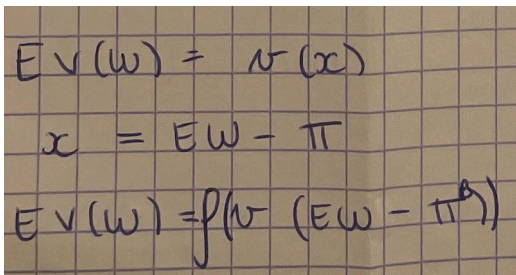 E V (W) = v (x)
x = EW - π
E V (W) = f(v (EW - π^β))